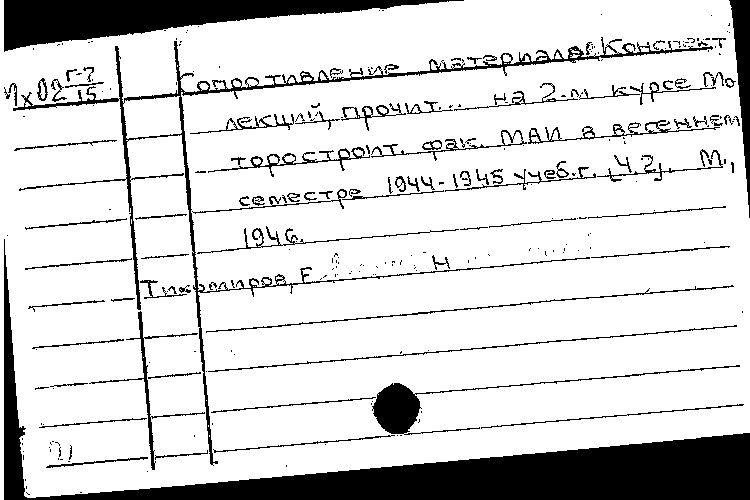 Сопротивление материалов. Конспект
лекций, прочит... на 2-м курсе Мо
торостроит. фак. МАИ в весеннем
семестре 1944-1945 учеб.г. [Ч.2]. М.,
1946.
Тихомиров, Е Н